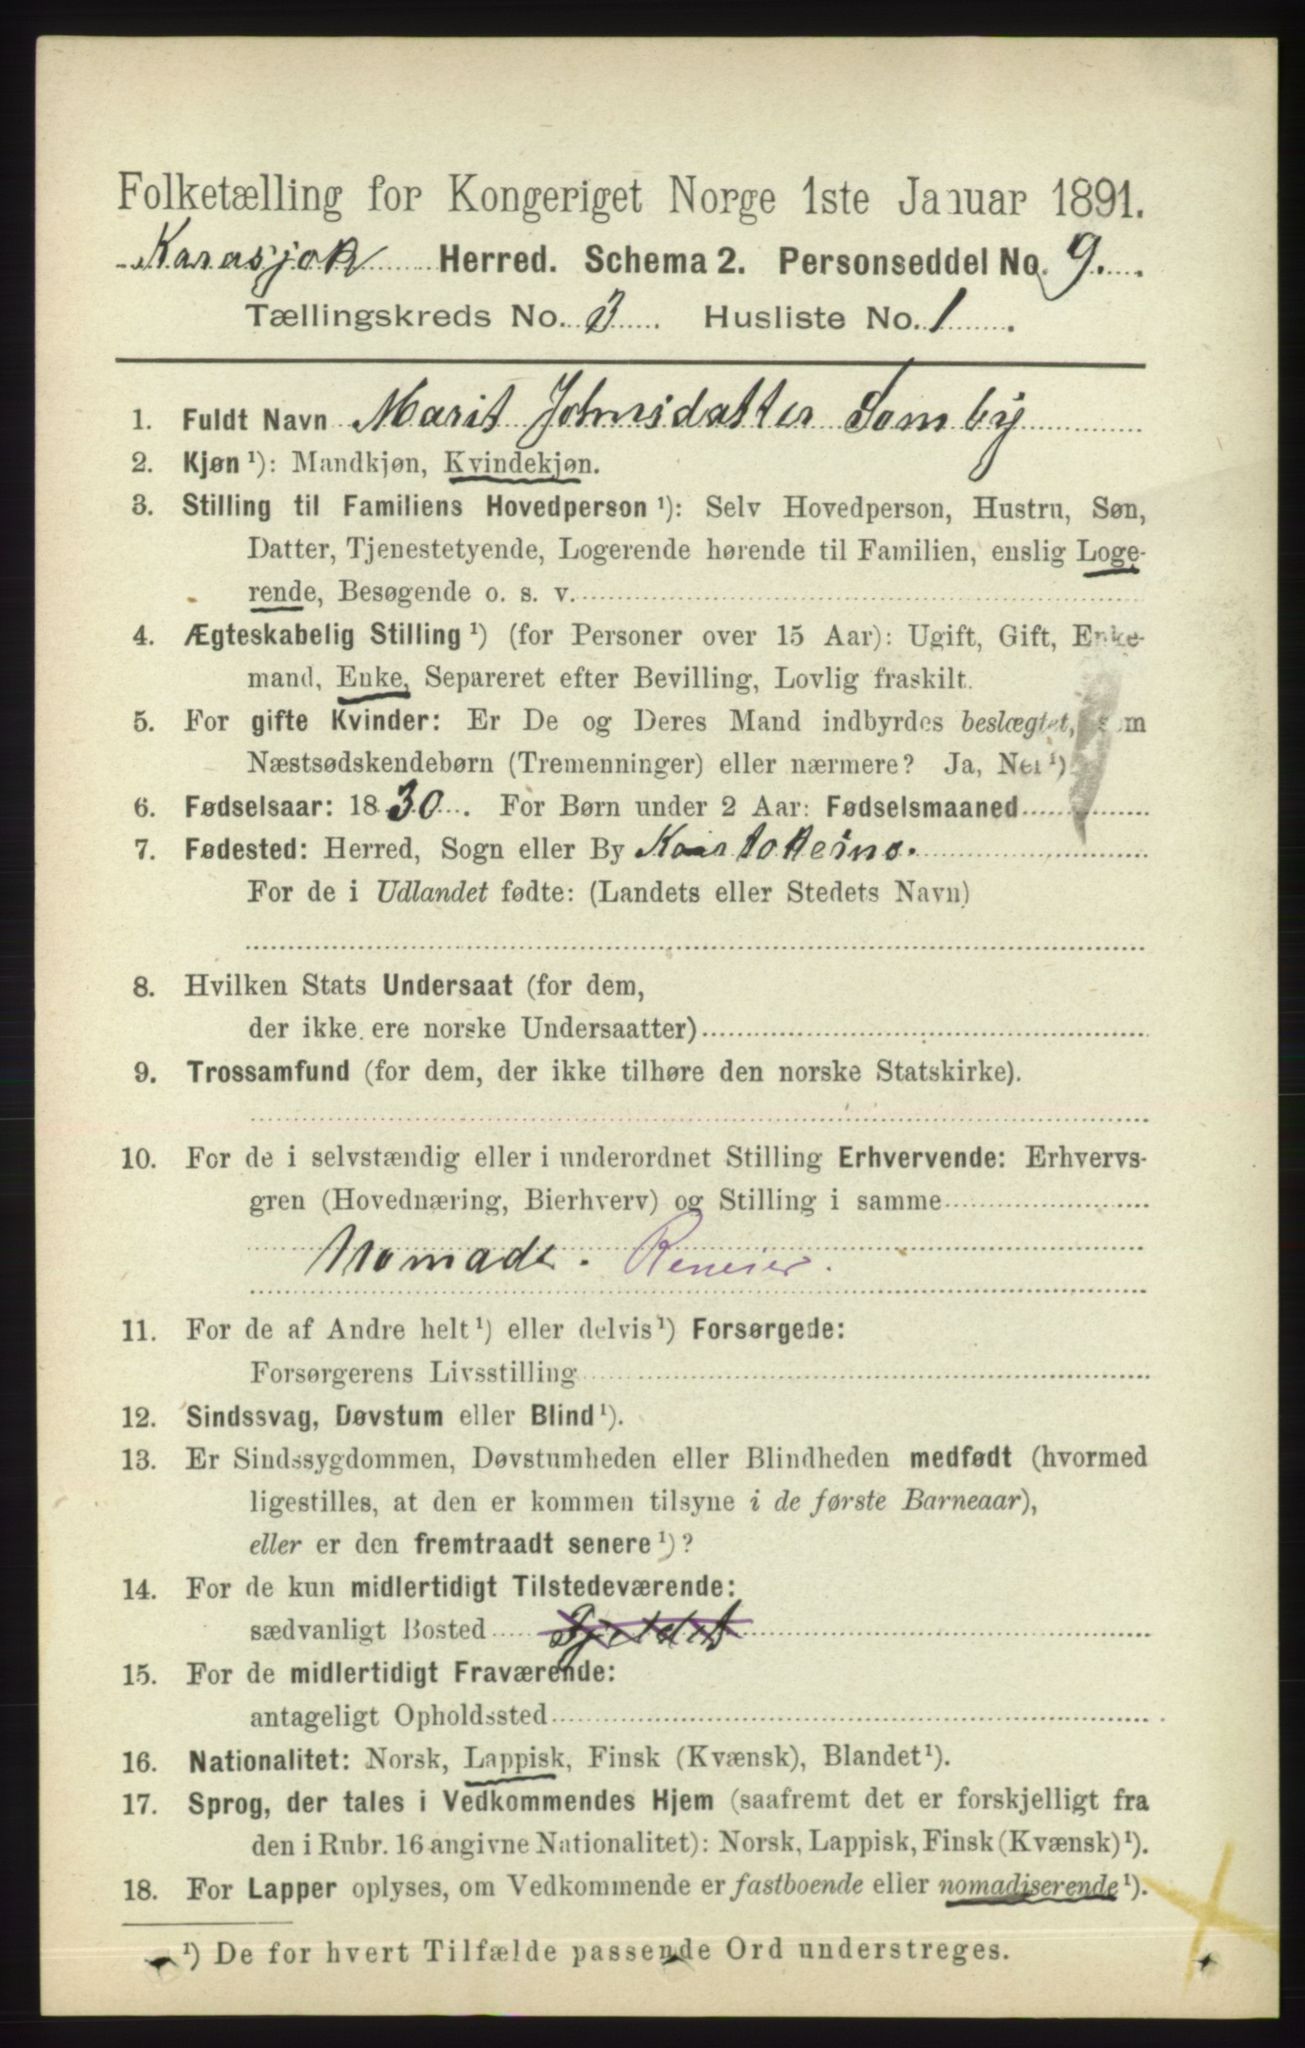 Folketælling for Kongeriget Norge 1ste Januar 1891.
Karasjok Herred. Schema 2. Personseddel No. 9.
Tællingskreds No. 3 Husliste No. 1.
1. Fuldt Navn Marit Johnsdatter Somby
2. Kjøn ¹): Mandkjøn, Kvindekjøn.
3. Stilling til Familiens Hovedperson ¹): Selv Hovedperson, Hustru, Søn,
Datter, Tjenestetyende, Logerende hørende til Familien, enslig Loge-
rende, Besøgende o. s. v.
4. Ægteskabelig Stilling ¹) (for Personer over 15 Aar): Ugift, Gift, Enke-
mand, Enke, Separeret efter Bevilling, Lovlig fraskilt.
5. For gifte Kvinder: Er De og Deres Mand indbyrdes beslægtet, som
Næstsødskendebørn (Tremenninger) eller nærmere? Ja, Nei ¹)
6. Fødselsaar: 1830. For Børn under 2 Aar: Fødselsmaaned
7. Fødested: Herred, Sogn eller By Kautokeino.
For de i Udlandet fødte: (Landets eller Stedets Navn)
8. Hvilken Stats Undersaat (for dem,
der ikke ere norske Undersaatter)
9. Trossamfund (for dem, der ikke tilhøre den norske Statskirke).
10. For de i selvstændig eller i underordnet Stilling Erhvervende: Erhvervs-
gren (Hovednæring, Bierhverv) og Stilling i samme
Nomade. Reneier.
11. For de af Andre helt ¹) eller delvis ¹) Forsørgede:
Forsørgerens Livsstilling
12. Sindssvag, Døvstum eller Blind ¹).
13. Er Sindssygdommen, Døvstumheden eller Blindheden medfødt (hvormed
ligestilles, at den er kommen tilsyne i de første Barneaar),
eller er den fremtraadt senere ¹)?
14. For de kun midlertidigt Tilstedeværende:
sædvanligt Bosted Fjeldet
15. For de midlertidigt Fraværende:
antageligt Opholdssted
16. Nationalitet: Norsk, Lappisk, Finsk (Kvænsk), Blandet ¹).
17. Sprog, der tales i Vedkommendes Hjem (saafremt det er forskjelligt fra
den i Rubr. 16 angivne Nationalitet): Norsk, Lappisk, Finsk (Kvænsk) ¹).
18. For Lapper oplyses, om Vedkommende er fastboende eller nomadiserende ¹).
¹) De for hvert Tilfælde passende Ord understreges.